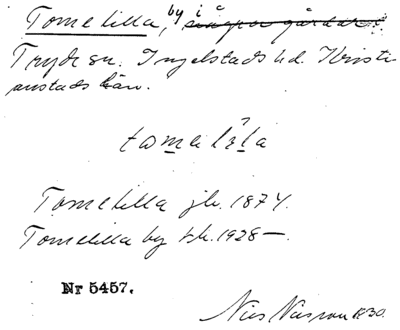 Tomelilla, by i
Tryde sn. Ingelstads hd. Kristi-
anstads län.
Tomelilla jk. 1874.
Tomelilla by tk. 1928 —.
Nr 5457.
Nils Nilsson 1930.